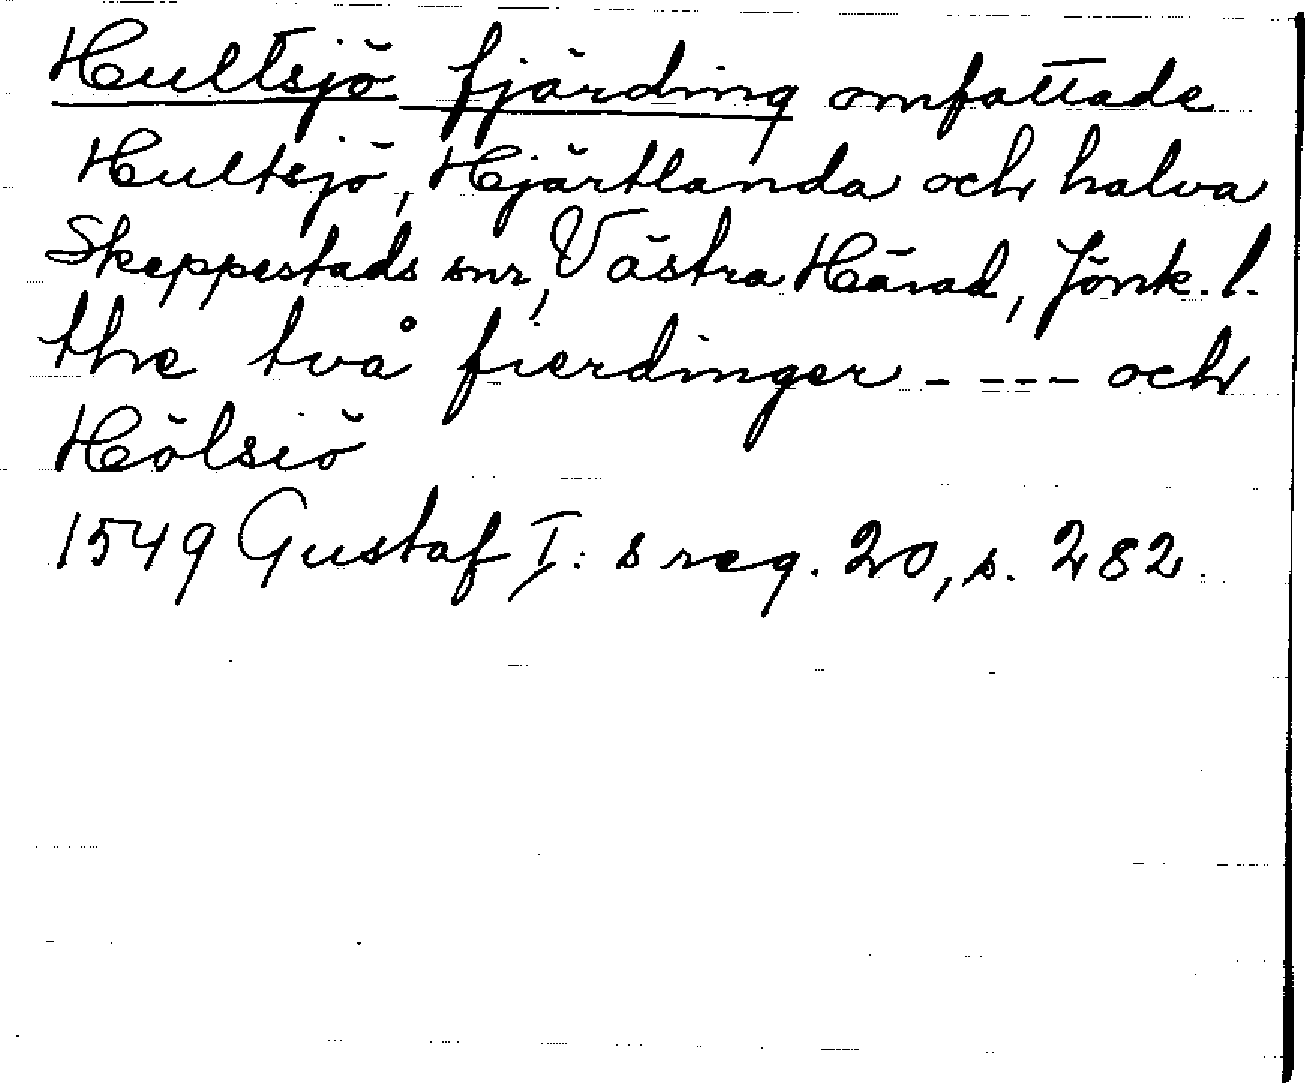 Hultsjö fjärding omfattade
Hultsjö, Hjärtlanda och halva
Skeppestads snr, Västra Härad, Jönk. l.
the två fierdinger - - - - och
Hölsiö
1549 Gustaf I: s reg. 20, s. 282.